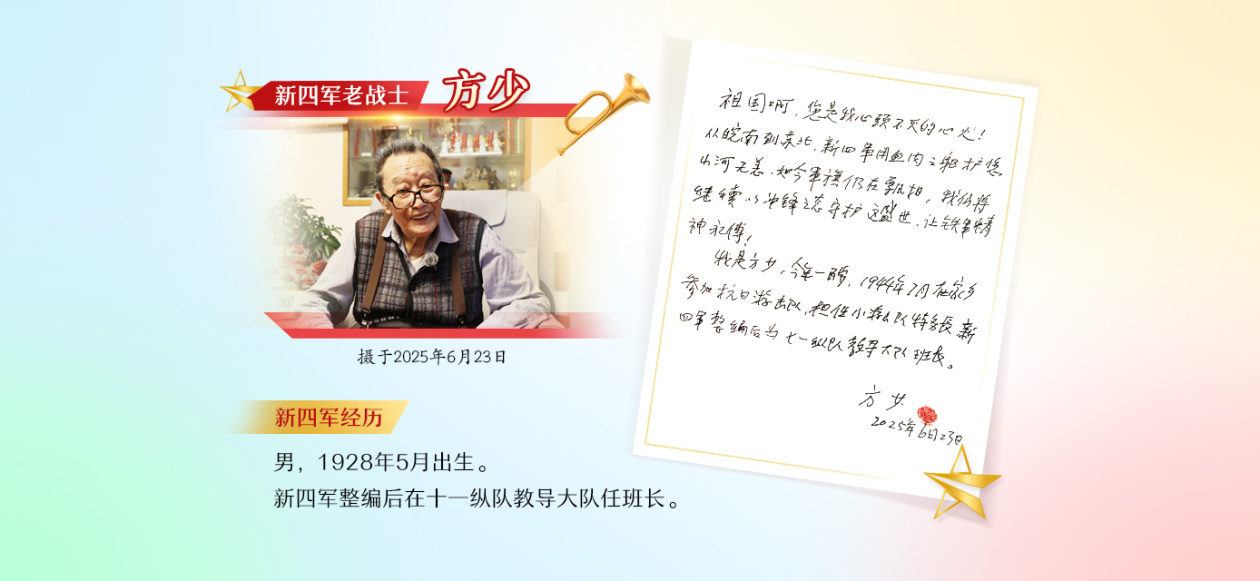 新四军老战士 方少
摄于2025年6月23日
新四军经历
男，1928年5月出生。
新四军整编后在十一纵队教导大队任班长。
祖国啊，您是我心头不灭的心火！
从皖南到苏北，新四军用血肉之躯护您
山河无恙，如今军旗仍在飘扬，我仍将
继续以冲锋之态守护这盛世，让铁军精
神永传！
我是方少，今年一 1944年7月在家乡
参加抗日游击队，担任小游击队特务长，新
四军整编后为十一纵队教导大队班长。
方少
2025年6月23日